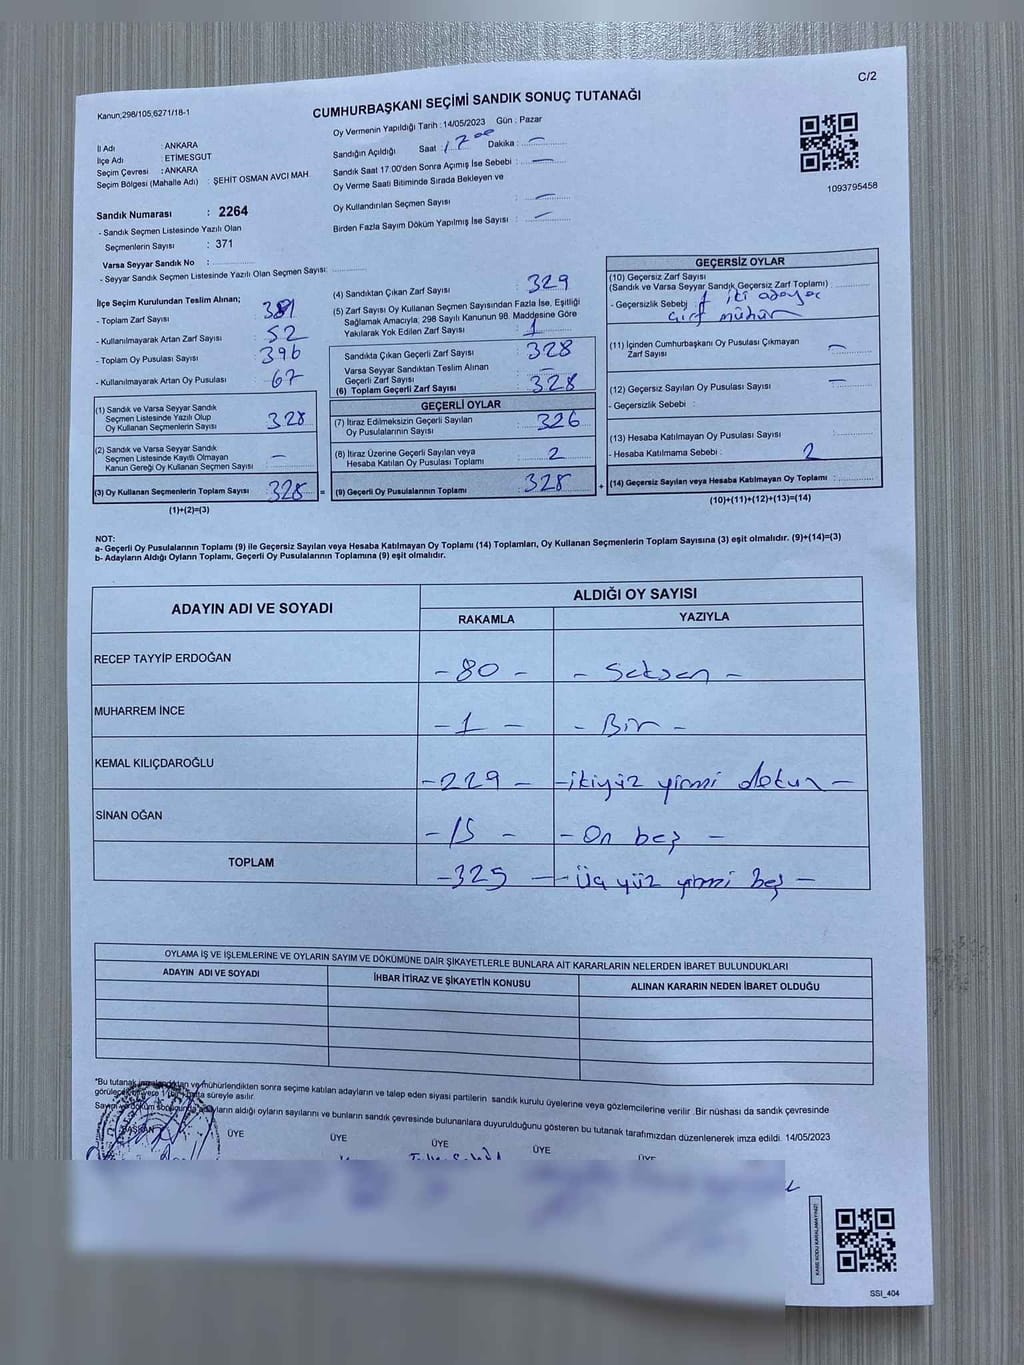 C/2
Kanun;298/105,6271/18-1
CUMHURBAŞKANI SEÇİMİ SANDIK SONUÇ TUTANAĞI
Oy Vermenin Yapıldığı Tarih : 14/05/2023 Gün : Pazar
İl Adı : ANKARA
İlçe Adı : ETİMESGUT
Seçim Çevresi : ANKARA
Seçim Bölgesi (Mahalle Adı) : ŞEHİT OSMAN AVCI MAH.
Sandığın Açıldığı Saat : 17 00 Dakika : —
Sandık Saat 17:00'den Sonra Açımış İse Sebebi : —
Oy Verme Saati Bitiminde Sırada Bekleyen ve
Oy Kullandırılan Seçmen Sayısı : —
Birden Fazla Sayım Döküm Yapılmış İse Sayısı : —
1093795458
Sandık Numarası : 2264
- Sandık Seçmen Listesinde Yazılı Olan
Seçmenlerin Sayısı : 371
Varsa Seyyar Sandık No :
- Seyyar Sandık Seçmen Listesinde Yazılı Olan Seçmen Sayısı:
İlçe Seçim Kurulundan Teslim Alınan;
- Toplam Zarf Sayısı : 381
- Kullanılmayarak Artan Zarf Sayısı : 52
- Toplam Oy Pusulası Sayısı : 396
- Kullanılmayarak Artan Oy Pusulası : 67
(1) Sandık ve Varsa Seyyar Sandık
Seçmen Listesinde Yazılı Olup
Oy Kullanan Seçmenlerin Sayısı : 328
(2) Sandık ve Varsa Seyyar Sandık
Seçmen Listesinde Kayıtlı Olmayan
Kanun Gereği Oy Kullanan Seçmen Sayısı : —
(3) Oy Kullanan Seçmenlerin Toplam Sayısı : 328
(1)+(2)=(3)
(4) Sandıktan Çıkan Zarf Sayısı : 329
(5) Zarf Sayısı Oy Kullanan Seçmen Sayısından Fazla İse, Eşitliği
Sağlamak Amacıyla; 298 Sayılı Kanunun 98. Maddesine Göre
Yakılarak Yok Edilen Zarf Sayısı : 1
Sandıkta Çıkan Geçerli Zarf Sayısı : 328
Varsa Seyyar Sandıktan Teslim Alınan
Geçerli Zarf Sayısı : —
(6) Toplam Geçerli Zarf Sayısı : 328
GEÇERLİ OYLAR
(7) İtiraz Edilmeksizin Geçerli Sayılan
Oy Pusulalarının Sayısı : 326
(8) İtiraz Üzerine Geçerli Sayılan veya
Hesaba Katılan Oy Pusulası Toplamı : 2
= (9) Geçerli Oy Pusulalarının Toplamı : 328 +
GEÇERSİZ OYLAR
(10) Geçersiz Zarf Sayısı
(Sandık ve Varsa Seyyar Sandık Geçersiz Zarf Toplamı) :
- Geçersizlik Sebebi : 1 iki adaya
çift mühür
(11) İçinden Cumhurbaşkanı Oy Pusulası Çıkmayan
Zarf Sayısı : —
(12) Geçersiz Sayılan Oy Pusulası Sayısı : —
- Geçersizlik Sebebi :
(13) Hesaba Katılmayan Oy Pusulası Sayısı :
- Hesaba Katılmama Sebebi : 2
(14) Geçersiz Sayılan veya Hesaba Katılmayan Oy Toplamı :
(10)+(11)+(12)+(13)=(14)
NOT:
a- Geçerli Oy Pusulalarının Toplamı (9) ile Geçersiz Sayılan veya Hesaba Katılmayan Oy Toplamı (14) Toplamları, Oy Kullanan Seçmenlerin Toplam Sayısına (3) eşit olmalıdır. (9)+(14)=(3)
b- Adayların Aldığı Oyların Toplamı, Geçerli Oy Pusulalarının Toplamına (9) eşit olmalıdır.
ADAYIN ADI VE SOYADI
ALDIĞI OY SAYISI
RAKAMLA YAZIYLA
RECEP TAYYİP ERDOĞAN - 80 - - Seksen -
MUHARREM İNCE - 1 - - Bir -
KEMAL KILIÇDAROĞLU - 229 - - ikiyüz yirmi dokuz -
SİNAN OĞAN - 15 - - On beş -
TOPLAM - 325 - - Üç yüz yirmi beş -
OYLAMA İŞ VE İŞLEMLERİNE VE OYLARIN SAYIM VE DÖKÜMÜNE DAİR ŞİKAYETLERLE BUNLARA AİT KARARLARIN NELERDEN İBARET BULUNDUKLARI
ADAYIN ADI VE SOYADI İHBAR İTİRAZ VE ŞİKAYETİN KONUSU ALINAN KARARIN NEDEN İBARET OLDUĞU
*Bu tutanak ve mühürlendikten sonra seçime katılan adayların ve talep eden siyasi partilerin sandık kurulu üyelerine veya gözlemcilerine verilir .Bir nüshası da sandık çevresinde
hafta süreyle asılır.
adayların aldığı oyların sayılarını ve bunların sandık çevresinde bulunanlara duyurulduğunu gösteren bu tutanak tarafımızdan düzenlenerek imza edildi. 14/05/2023
BAŞKAN ÜYE ÜYE ÜYE ÜYE ÜYE
KARE KODU KARALAMAYINIZ!
SSI_404